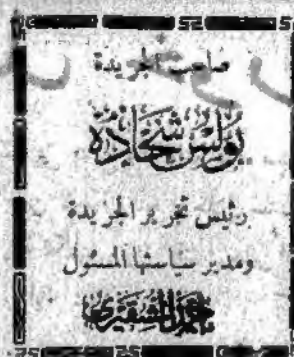 صاحب الجريدة
بولس شحادة
رئيس تحرير الجريدة
ومدير سياستها المسئول
محمد الشقيري